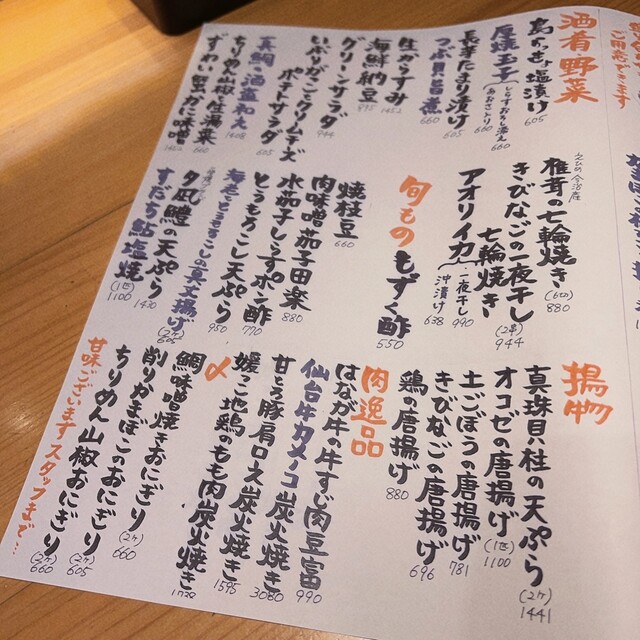 ご用意できます
酒肴・野菜
島らっきょ塩漬け 605
厚焼玉子(しらすおろし添え 660
あおさとり 660
長芋たまり漬け 605
つぶ貝旨煮 660
生からすみ 1452
海鮮納豆 995
グリーンサラダ
いぶりがっことクリームチーズ 944
ポテトサラダ 605
真鯛の酒盗和え
ちりめん山椒 湯葉 1408
ずわい蟹かに味噌 1452
660
えひめ今治産
椎茸の七輪焼き (6切) 880
きびなごの一夜干し
七輪焼き (2串) 944
アオリイカ(一夜干し 990
沖漬け 638
旬もの
もずく酢 550
焼枝豆 660
肉味噌茄子田楽 880
水茄子しらすのポン酢 770
とうもろこし天ぷら 950
海老とうもろこしの真丈揚げ (2ケ) 605
夕凪鱧の天ぷら 1430
すだち鮎塩焼 (1匹) 1100
揚物
真珠貝柱の天ぷら (2ケ) 1441
オコゼの唐揚げ (1匹) 1100
土ごぼうの唐揚げ 781
きびなごの唐揚げ 696
鶏の唐揚げ 880
肉逸品
はなが牛の牛すじ肉豆富 990
仙台牛カメノコ炭火焼き 3080
甘とろ豚肩ロース炭火焼き 1595
媛っこ地鶏のもも肉炭火焼き 1738
〆
鯛味噌焼きおにぎり (2ケ) 660
削りかまぼこのおにぎり (2ケ) 605
ちりめん山椒おにぎり (2ケ) 660
甘味ございます スタッフまで…